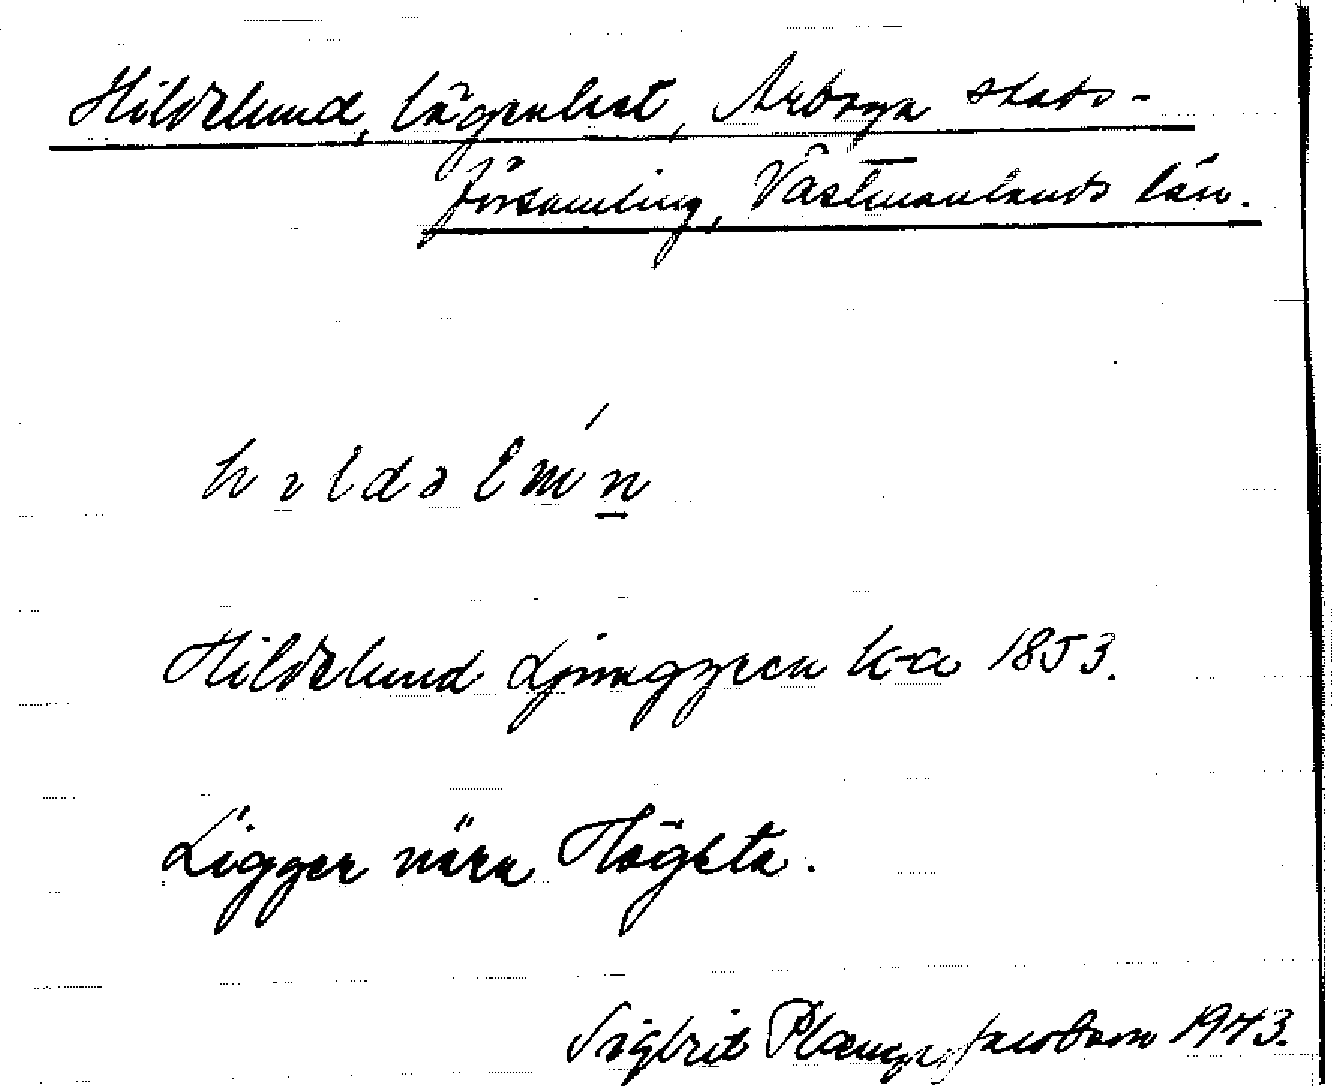 Hildelund, lägenhet, Arboga stads-
församling, Västmanlands län.
Hildelund Ljunggren k-a 1853.
Ligger nära Högsta.
Sigfrid Jacobson 1943.